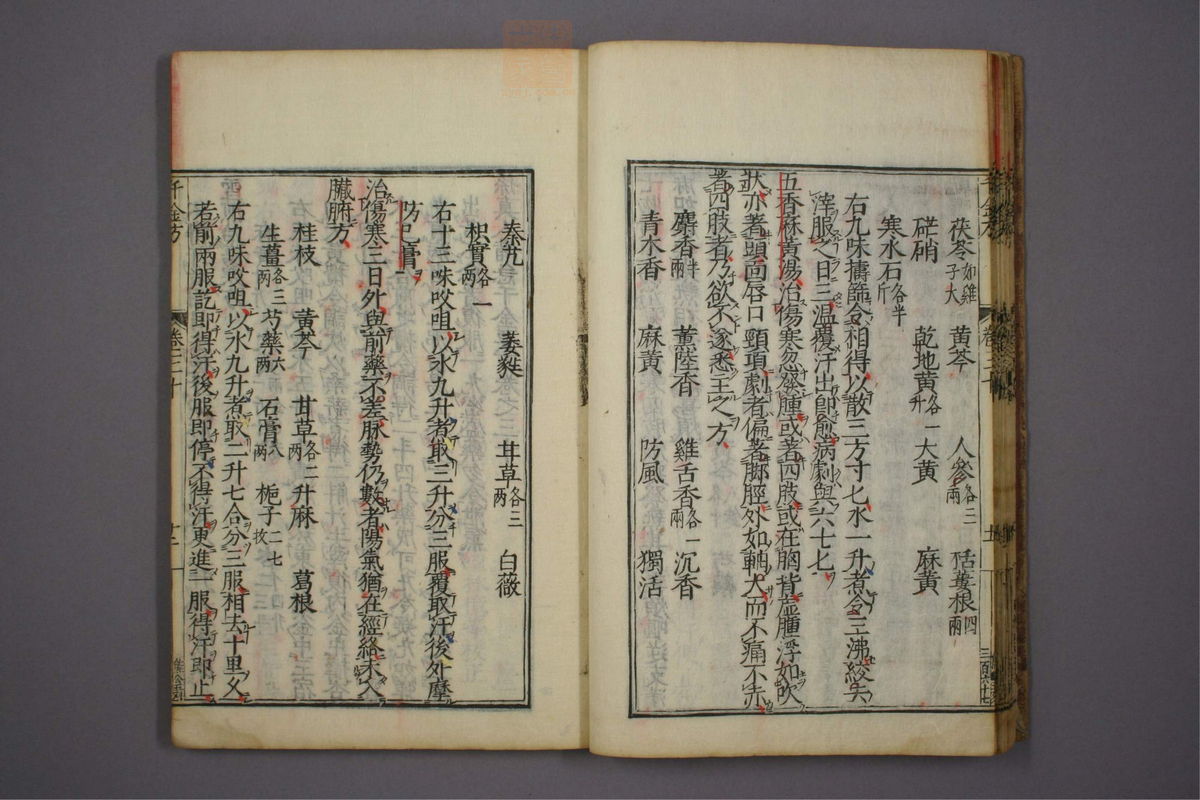 茯苓如雞子大 黃芩 人參各三兩 栝蔞根四兩
硭硝 乾地黃各一升 大黃 麻黃
寒水石各半斤
右九味擣篩令相得以散三方寸匕水一升煮令三沸絞去
滓服之日三溫覆汗出即愈病劇與六七匕
五香麻黃湯治傷寒忽發腫或著四肢或在胸背虛腫浮如吹
狀亦著頭面唇口頸項劇者偏著腳脛外如軸大而不痛不赤
著四肢者乃欲不遂悉主之方
麝香半兩 薰陸香 雞舌香各一兩 沉香
青木香 麻黃 防風 獨活
秦艽 萎蕤 甘草各三兩 白薇
枳實各一兩
右十三味㕮咀以水九升煮取三升分三服覆取汗後外摩
防己膏
治傷寒三日外與前藥不差脈勢仍數者陽氣猶在經絡未入
臟腑方
桂枝 黃芩 甘草各二兩 升麻 葛根
生薑各三兩 芍藥六兩 石膏八兩 梔子二七枚
右九味㕮咀以水九升煮取二升七合分三服相去十里又
若前兩服訖即得汗後服即停不得汗更進一服得汗即止
千金方 卷三十